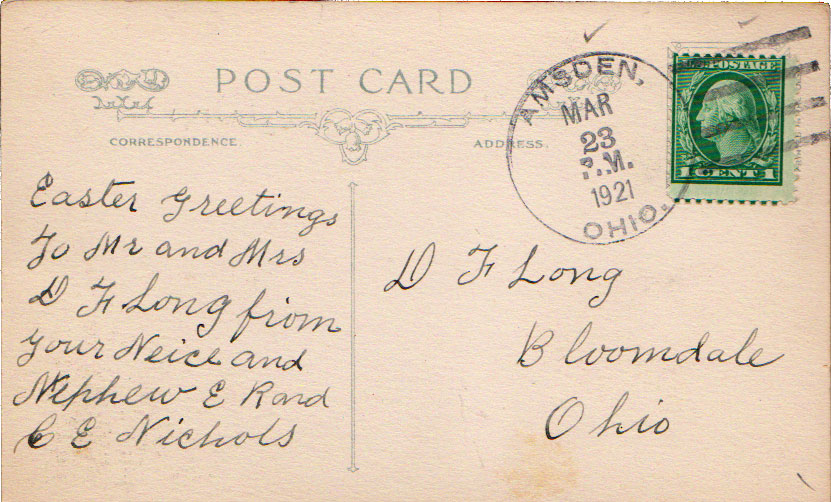 POST CARD
CORRESPONDENCE
ADDRESS.
AMSDEN,
MAR
23
P.M.
1921
OHIO.
U.S. POSTAGE
1 CENT 1
Easter Greetings
To Mr and Mrs
D F Long from
Your Neice and
Nephew E R and
C E Nichols
D F Long
Bloomdale
Ohio